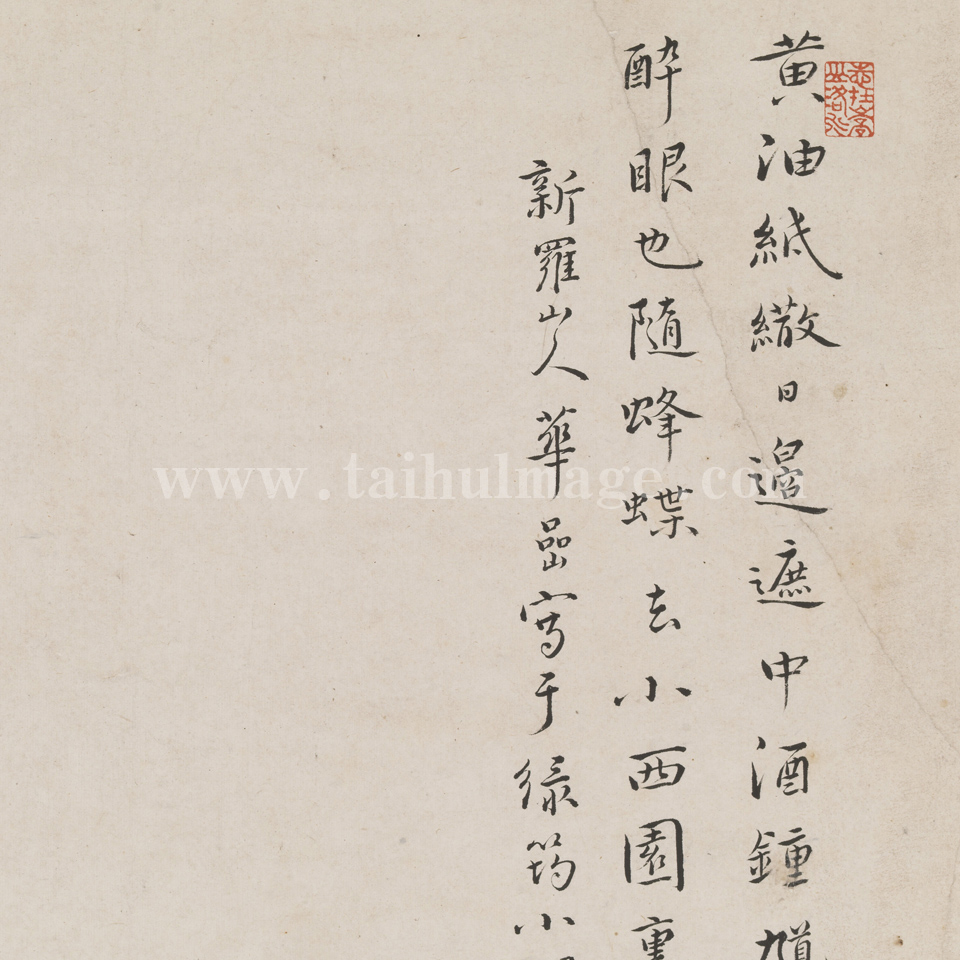 黄油紙繖日邊遮中酒鍾馗
酔眼也隨蜂蝶去小西園裏
新羅山人華喦寫于綠筠小
www.taihuImage.com